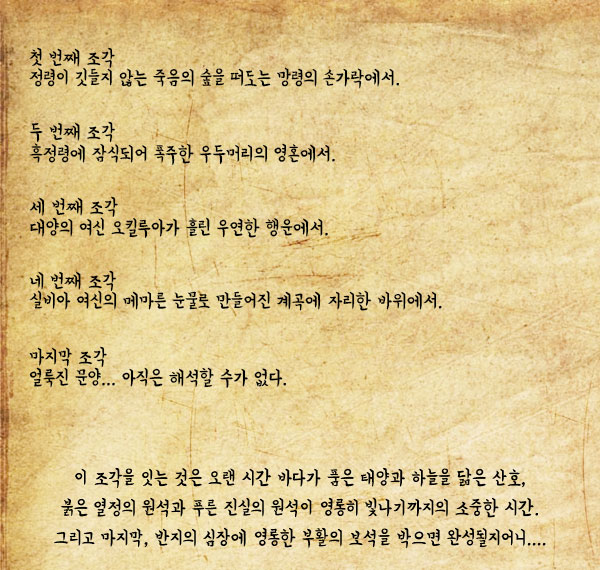 첫 번째 조각
정령이 깃들지 않는 죽음의 숲을 떠도는 망령의 손가락에서.
두 번째 조각
흑정령에 잠식되어 폭주한 우두머리의 영혼에서.
세 번째 조각
대양의 여신 오킬루아가 흘린 우연한 행운에서.
네 번째 조각
실비아 여신의 메마른 눈물로 만들어진 계곡에 자리한 바위에서.
마지막 조각
얼룩진 문양... 아직은 해석할 수가 없다.
이 조각을 잇는 것은 오랜 시간 바다가 품은 태양과 하늘을 닮은 산호,
붉은 열정의 원석과 푸른 진실의 원석이 영롱히 빛나기까지의 소중한 시간.
그리고 마지막, 반지의 심장에 영롱한 부활의 보석을 박으면 완성될지어니....